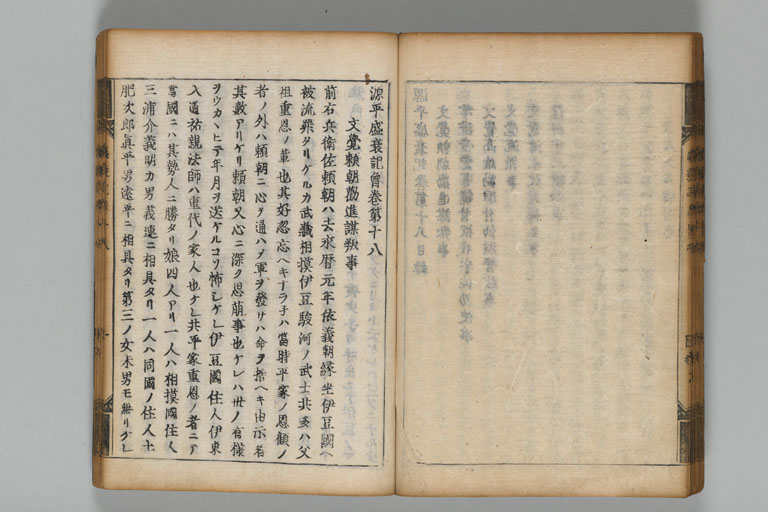 源平盛衰記曾巻第十八
文覺頼朝勸進謀叛事
前右兵衛佐頼朝ハ去永暦元年依義朝縁坐伊豆國ヘ
被流罪タリケルカ武蔵相摸伊豆駿河ノ武士共多ハ父
祖重恩ノ輩也其好忽忘ヘキナラ子ハ當時平家ノ恩顧ノ
者ノ外ハ頼朝ニ心ヲ通ハメ軍ヲ發サハ命ヲ捨ヘキ由示者
其數アリケリ頼朝又心ニ深ク思萠事也ケレハ世ノ有様
ヲウカヽヒテ年月ヲ送ケルコソ怖シケレ伊豆國住人伊東
入道祐親法師ハ重代ノ家人也ケレ共平家重恩ノ者ニテ
當國ニハ其勢人ニ勝タリ娘四人アリ一人ハ相摸國住人
三浦介義明カ男義連ニ相具タリ一人ハ同國ノ住人土
肥次郎眞平男遠平ニ相具タリ第三ノ女未男モ無リケレ